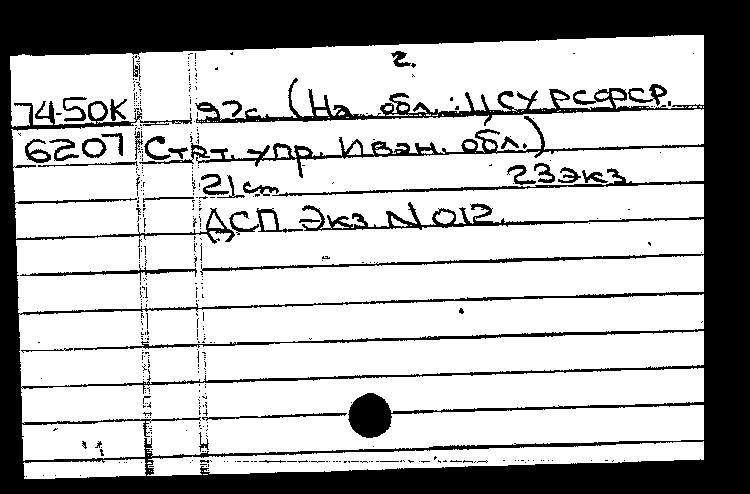 2.
74-50К 97с. (На обл.: ЦСУ РСФСР.
6207 Стат. упр. Иван. обл.)
21 cm 23 экз.
ДСП Экз. N 012.